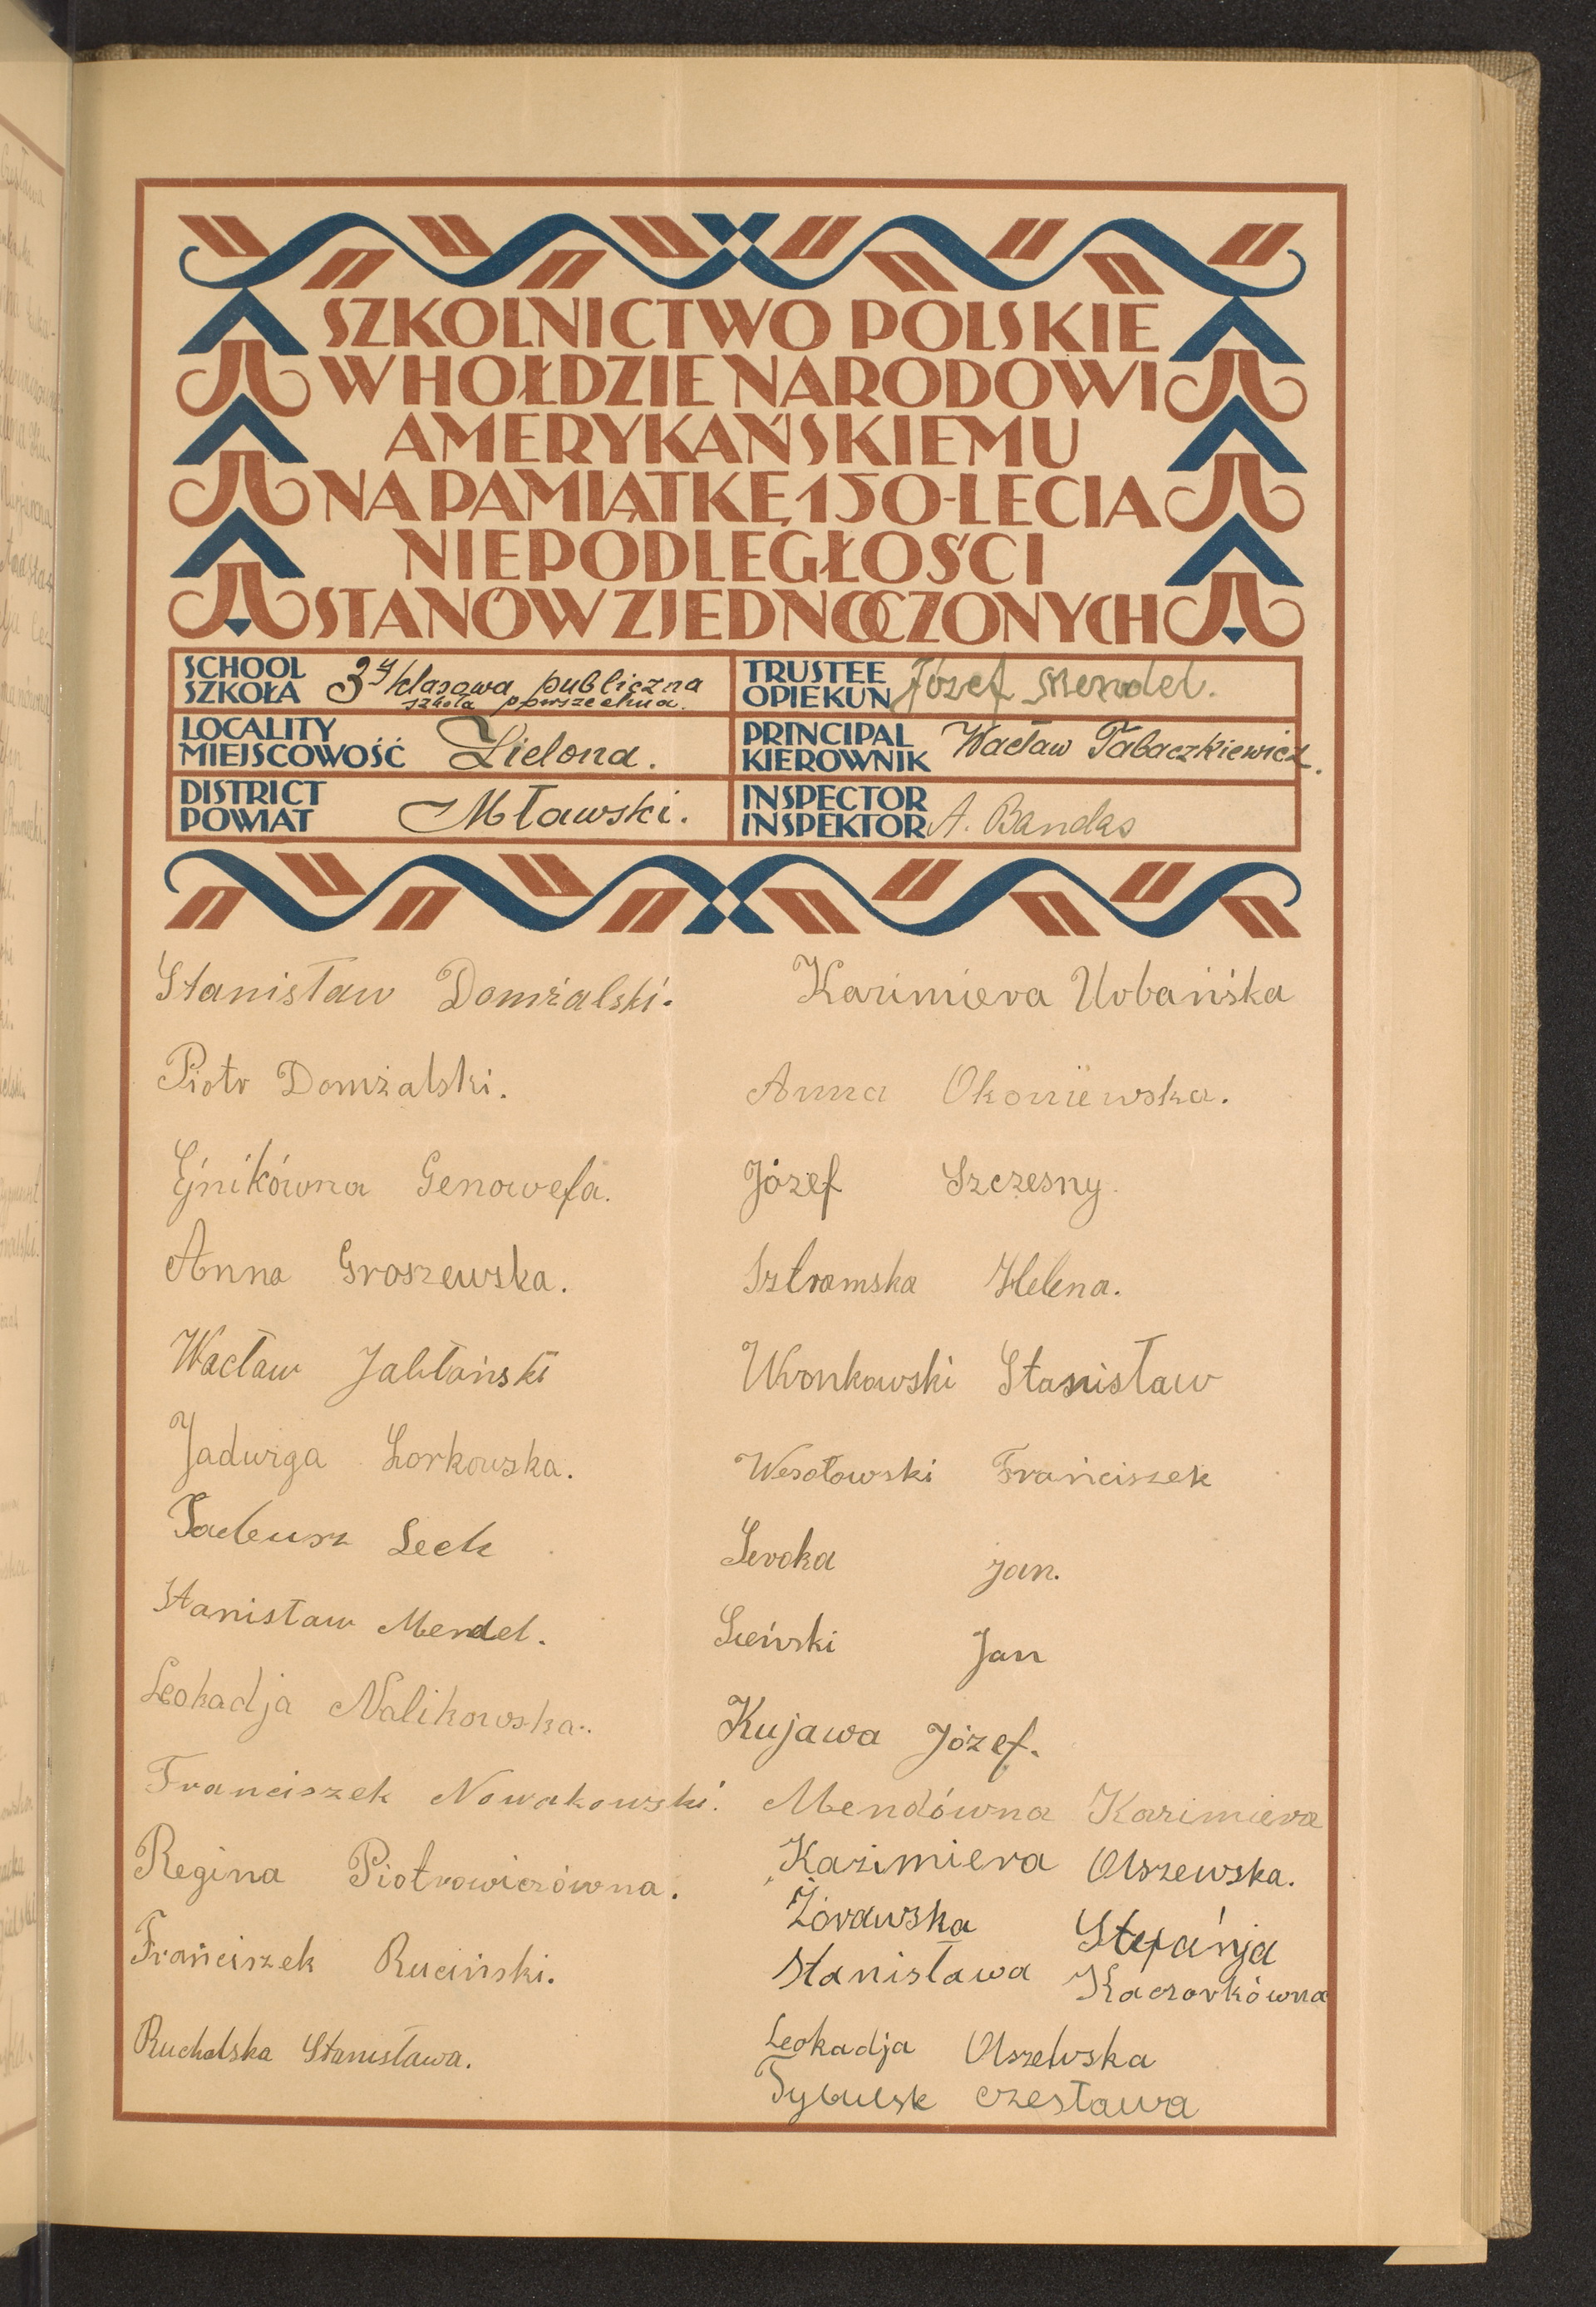 SZKOLNICTWO POLSKIE
W HOŁDZIE NARODOWI
AMERYKAŃSKIEMU
NA PAMIĄTKĘ 150-LECIA
NIEPODLEGŁOŚCI
STANÓW ZJEDNOCZONYCH
SCHOOL
SZKOŁA
3y klasowa publiczna
szkoła powszechna.
TRUSTEE
OPIEKUN
Józef Mendel.
LOCALITY
MIEJSCOWOŚĆ
Zielona.
PRINCIPAL
KIEROWNIK
Wacław Tabaczkiewicz.
DISTRICT
POWIAT
Mławski.
INSPECTOR
INSPEKTOR
A. Bandas
Stanisław Domżalski.
Piotr Domżalski.
Ejnikówna Genowefa.
Anna Groszewska.
Wacław Jabłoński
Jadwiga Lorkowska.
Tadeusz Lech
Stanisław Mendel.
Leokadja Nalikowska.
Franciszek Nowakowski.
Regina Piotrowiczówna.
Frańciszek Ruciński.
Ruchalska Stanisława.
Kazimiera Urbańska
Anna Okoniewska.
Józef Szczesny.
Sztramska Helena.
Wronkowski Stanisław
Wesołowski Frańciszek
Seroka Jan.
Lieński Jan
Kujawa Józef.
Mendówna Kazimiera
Kazimiera Olszewska.
Żórawska Stefańja
Stanisława Kaczorkówna
Leokadja Olszewska
Tybulsk Czesława